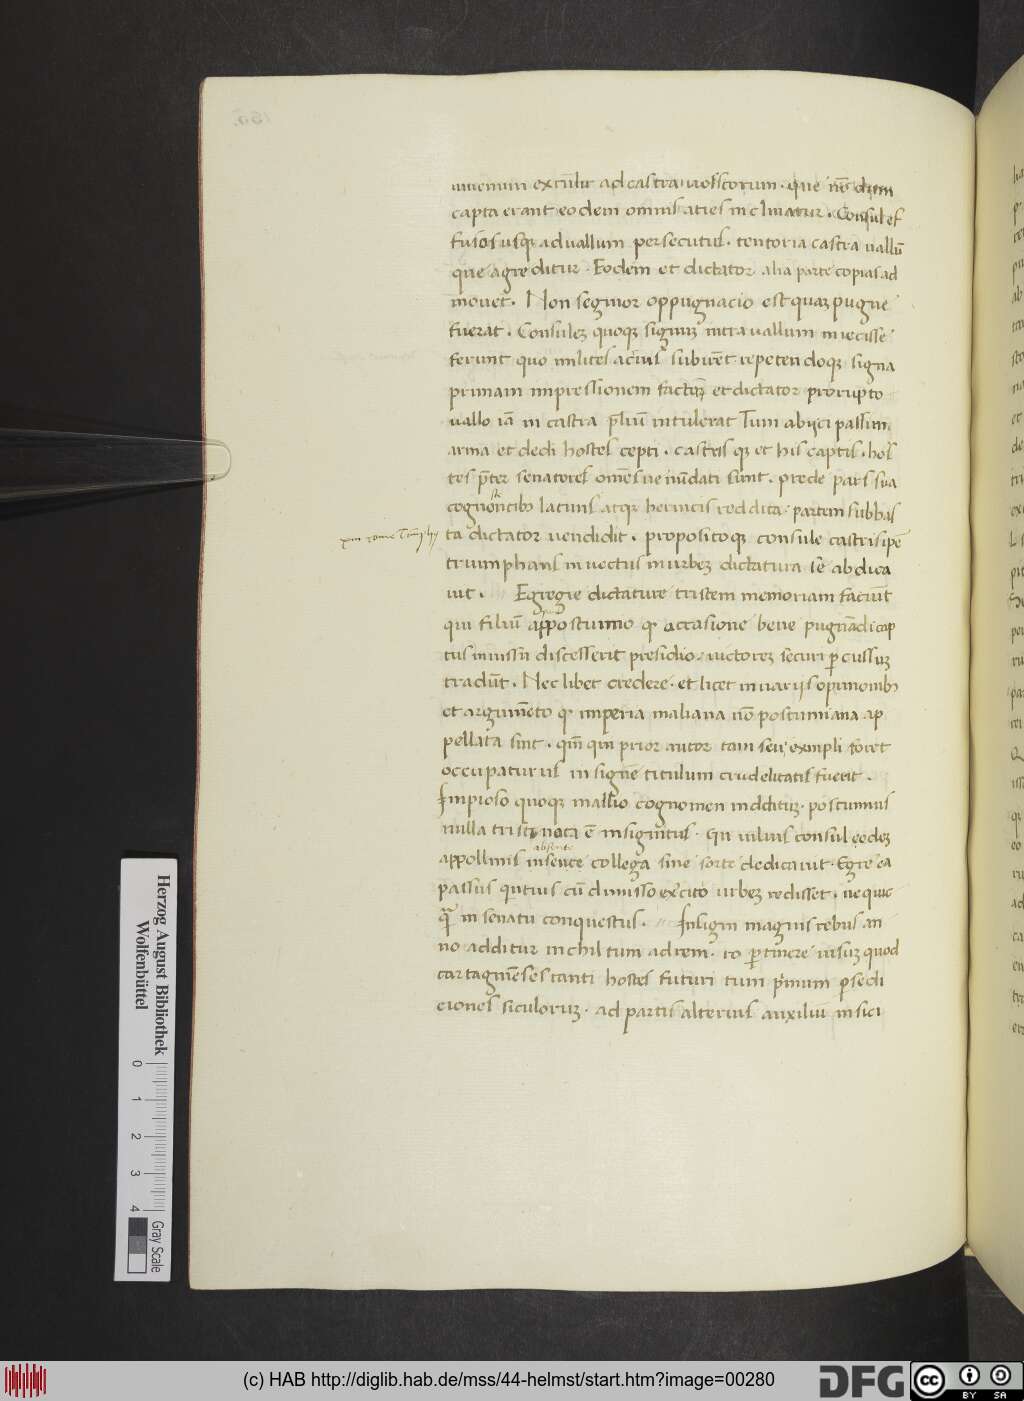 iuuenum extulit ad castra uolscorum · que nō dum
capta erant eodem omnis aties inclinatur · Consul ef
fusos usq; ad uallum persecutus · tentoria castra uallū
que agreditur · Eodem et dictator alia parte copias ad
mouet · Non segnior oppugnacio est quaz pugne
fuerat · Consulez quoq; signuz intra uallum iniecisse
ferunt quo milites acrius subirēt repetendoq; signa
primam impressionem factaz et dictator prorupto
uallo iā in castra p̄liū intulerat Tum abijci passim
arma et dedi hostes cepti · castris q; et his captis · hos
tes p̄ter senatores om̄es uenūdati sunt · prede pars sua
cognoscentibꝫ latinis atq; hernicis reddita · partem subhas
ta dictator uendidit · propositoq; consule castris ipse
xiii rome
triumphans inuectus in urbez dictatura se abdica
uit · Egregie dictature tristem memoriam faciūt
qui filiū a postumio qꝫ occasione bene pugnādi cap
tus iniussu discesserit presidio · uictorez securi ꝑcussuz
tradūt · Nec libet credere · et licet in uarijs opinionibꝫ
et argumēto qꝫ imperia maliana nō postumiana ap
pellata sint · qm̄ qui prior autor tam seui exmpli foret
occupaturus insigne titulum crudelitatis fuerit ·
Impioso quoq; mallio cognomen indditūz · postumius
nulla tristi nota ē insignitus · Gn iulius consul eodez
absente
appollinis insence collega sine sorte dedicauit · Egre ea
passus quītius cū dimisso ex̄cito urbez redisset · ne quic
q̄ in senatu conquestus · Insigni magnis rebus an
no additur inchil tum ad rem · ro ꝑtinere uisuz quod
cartaginēses tanti hostes futuri tum p̄mum ꝑ sedi
ciones siculoruz · ad partis alterius auxiliū in sici
Herzog August Bibliothek
Wolfenbüttel
0 1 2 3 4
Gray Scale
(c) HAB http://diglib.hab.de/mss/44-helmst/start.htm?image=00280
DFG
cc BY SA